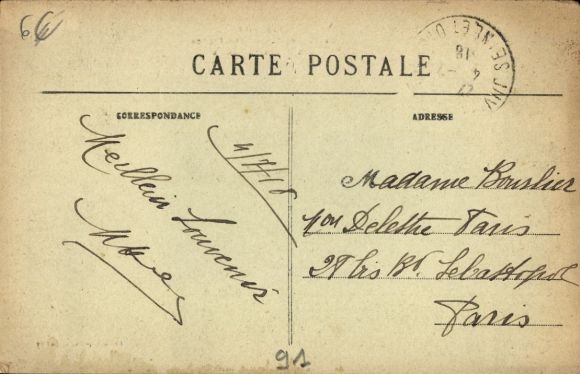 CARTE POSTALE
CORRESPONDANCE
ADRESSE
4/7/18
Meilleur Souvenir
Madame Bourlier
Delestre Paris
bis Bd Sebastopol
Paris
91